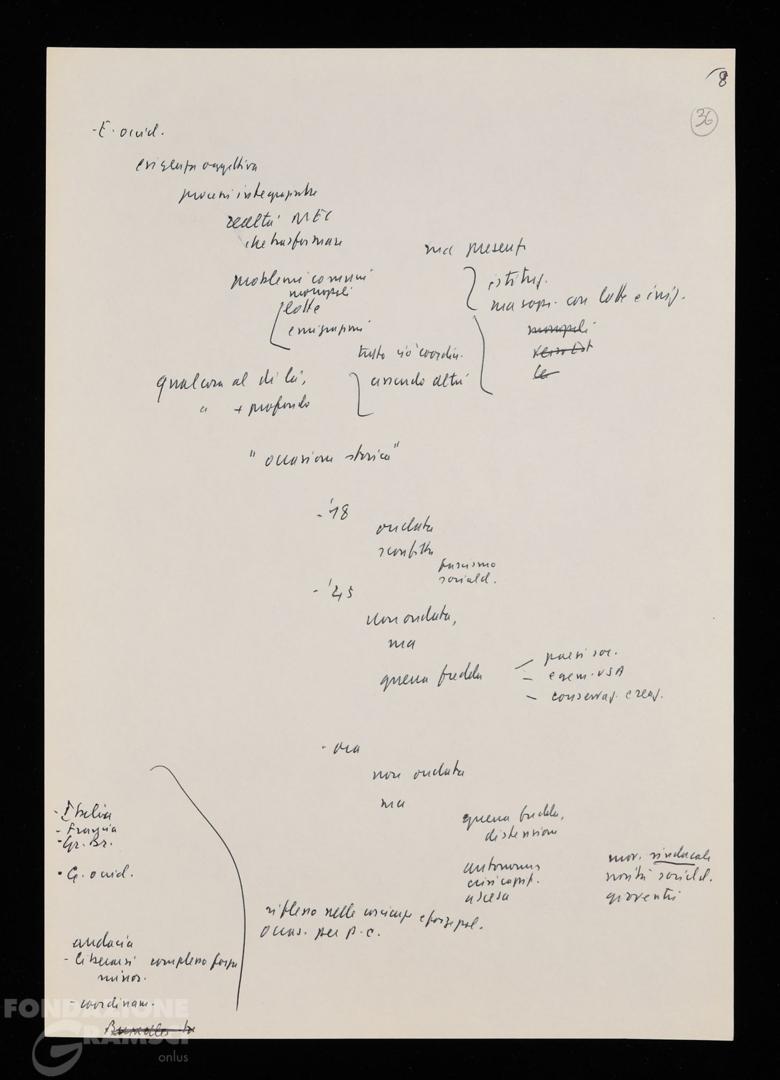 8
36
- E. occid.
esigenza oggettiva
processi integrazione
realtà MEC
che trasformare
ma presenti
problemi comuni
monopoli
lotte
emigrazioni
istituz.
ma sopr. con lotte e iniz.
monopoli
verso Est
Le
tutto ciò coordin.
qualcosa al di là,
" + profondo
avendo altri
"occasione storica"
- '18
ondata
sconfitta
fascismo
sociald.
- '45
non ondata,
ma
guerra fredda
paesi soc.
- egem. USA
- conservaz. e reaz.
- ora
non ondata
ma
guerra fredda,
distensione
autonomia
crisi capit.
ascesa
mov. sindacale
novità sociald.
gioventù
- Italia
- Francia
- Gr. Br.
- G. occid.
riflesso nelle coscienze e forze pol.
Occas. per P.C.
audacia
- liberarsi complesso forza
minor.
- coordinam.
FONDAZIONE
GRAMSCI
onlus